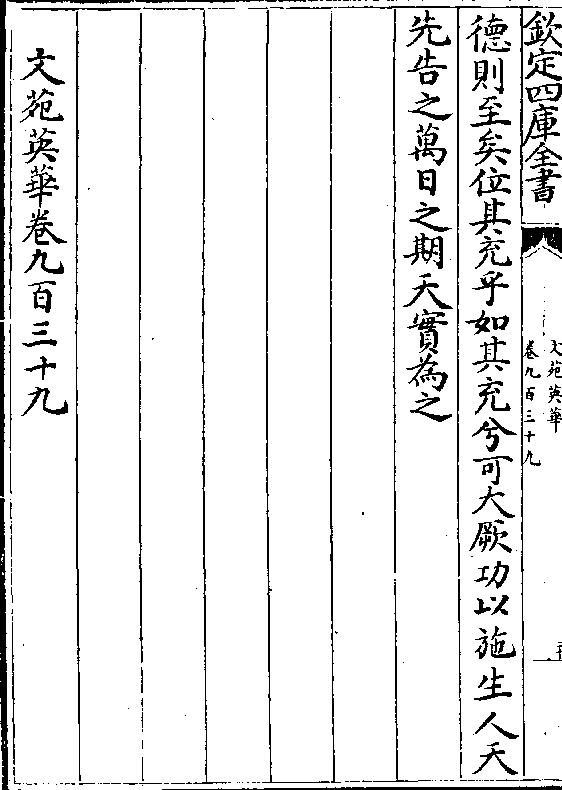 欽定四庫全書
文苑英華
卷九百三十九
德則至矣位其充乎如其充兮可大厥功以施生人天
先告之萬日之期天實為之
文苑英華卷九百三十九